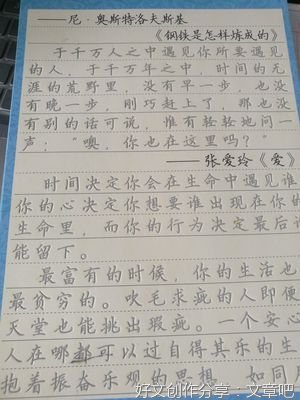 ——尼·奥斯特洛夫斯基
《钢铁是怎样炼成的》
于千万人之中遇见你所要遇见
的人，于千万年之中，时间的无
涯的荒野里，没有早一步，也没
有晚一步，刚巧赶上了，那也没
有别的话可说，惟有轻轻地问一
声：“噢，你也在这里吗？”
——张爱玲《爱》
时间决定你会在生命中遇见谁
你的心决定你想要谁出现在你的
生命里，而你的行为决定最后谁
能留下。
最富有的时候，你的生活也
最贫穷的。吹毛求疵的人即便
天堂也能挑出瑕疵。一个安心
人在哪都可以过自得其乐的生
抱着振奋乐观的思想，如同居
好文创作分享：文章吧